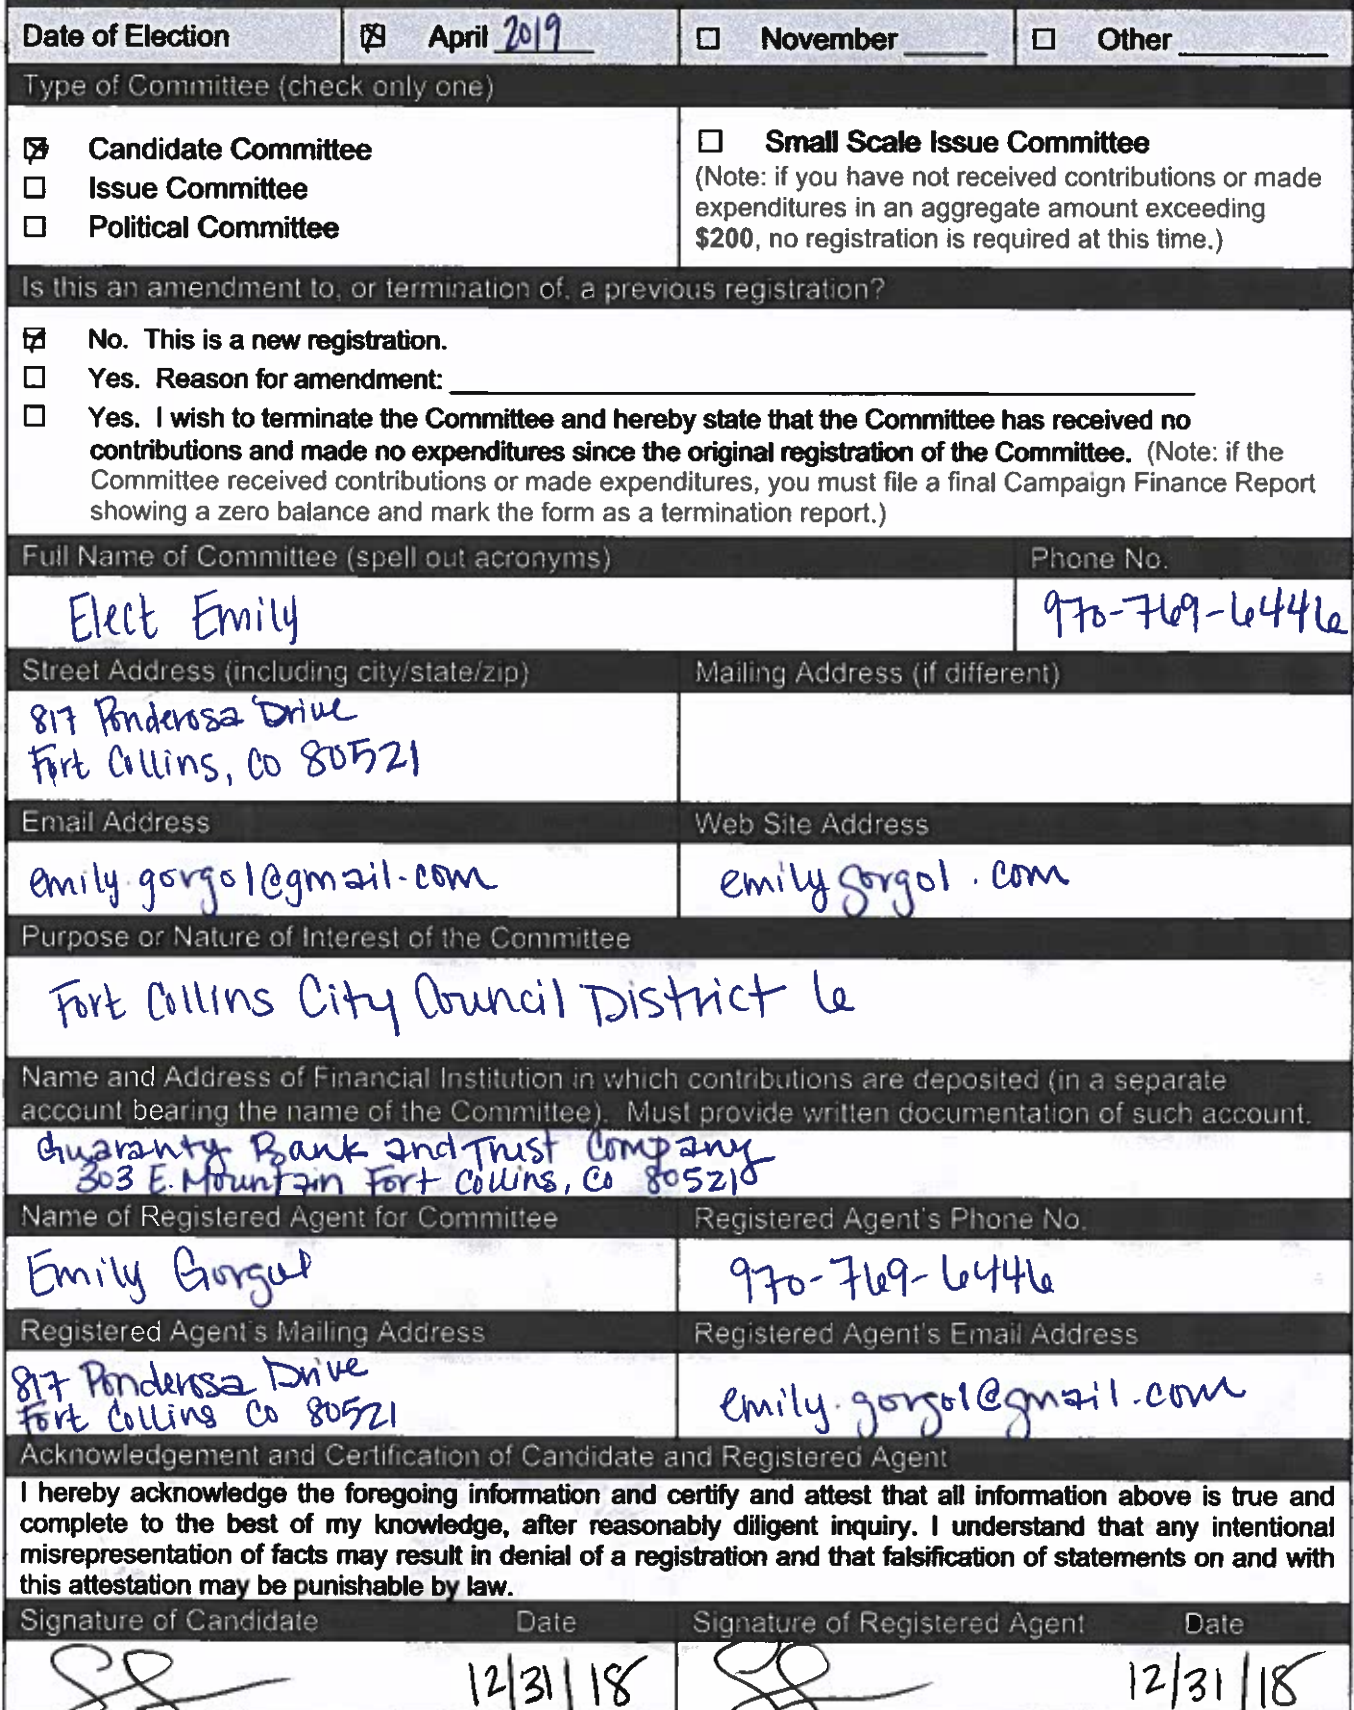 Date of Election ☒ April 2019 ☐ November ______ ☐ Other ______
Type of Committee (check only one)
☒ Candidate Committee
☐ Issue Committee
☐ Political Committee
☐ Small Scale Issue Committee
(Note: if you have not received contributions or made
expenditures in an aggregate amount exceeding
$200, no registration is required at this time.)
Is this an amendment to, or termination of, a previous registration?
☒ No. This is a new registration.
☐ Yes. Reason for amendment: ______
☐ Yes. I wish to terminate the Committee and hereby state that the Committee has received no
contributions and made no expenditures since the original registration of the Committee. (Note: if the
Committee received contributions or made expenditures, you must file a final Campaign Finance Report
showing a zero balance and mark the form as a termination report.)
Full Name of Committee (spell out acronyms) Phone No.
Elect Emily 970-769-6446
Street Address (including city/state/zip) Mailing Address (if different)
817 Ponderosa Drive
Fort Collins, CO 80521
Email Address Web Site Address
emily.gorgol@gmail.com emilygorgol.com
Purpose or Nature of Interest of the Committee
Fort Collins City Council District 6
Name and Address of Financial Institution in which contributions are deposited (in a separate
account bearing the name of the Committee). Must provide written documentation of such account.
Guaranty Bank and Trust Company
303 E. Mountain Fort Collins, CO 80521
Name of Registered Agent for Committee Registered Agent's Phone No.
Emily Gorgol 970-769-6446
Registered Agent's Mailing Address Registered Agent's Email Address
817 Ponderosa Drive
Fort Collins CO 80521
emily.gorgol@gmail.com
Acknowledgement and Certification of Candidate and Registered Agent
I hereby acknowledge the foregoing information and certify and attest that all information above is true and
complete to the best of my knowledge, after reasonably diligent inquiry. I understand that any intentional
misrepresentation of facts may result in denial of a registration and that falsification of statements on and with
this attestation may be punishable by law.
Signature of Candidate Date Signature of Registered Agent Date
12/31/18 12/31/18